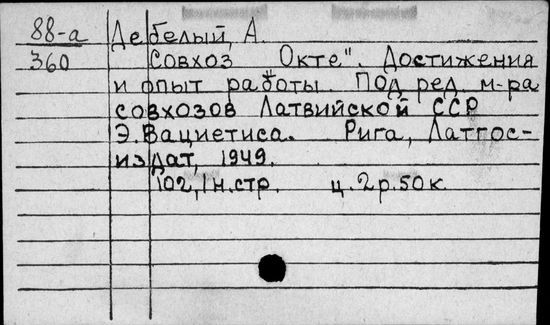 88-а Дебелый, А.
360 Совхоз "Окте". Достижения
и опыт работы. Под ред. м-ра
совхозов Латвийской ССР
Э. Вациетиса. Рига, Латгос-
издат, 1949.
102,1 н.стр. ц. 2 р. 50 к.